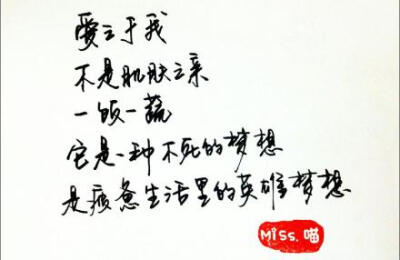 愛之于我
不是肌肤之亲
一饭一蔬
它是一种不死的梦想
是疲惫生活里的英雄梦想
Miss.喵